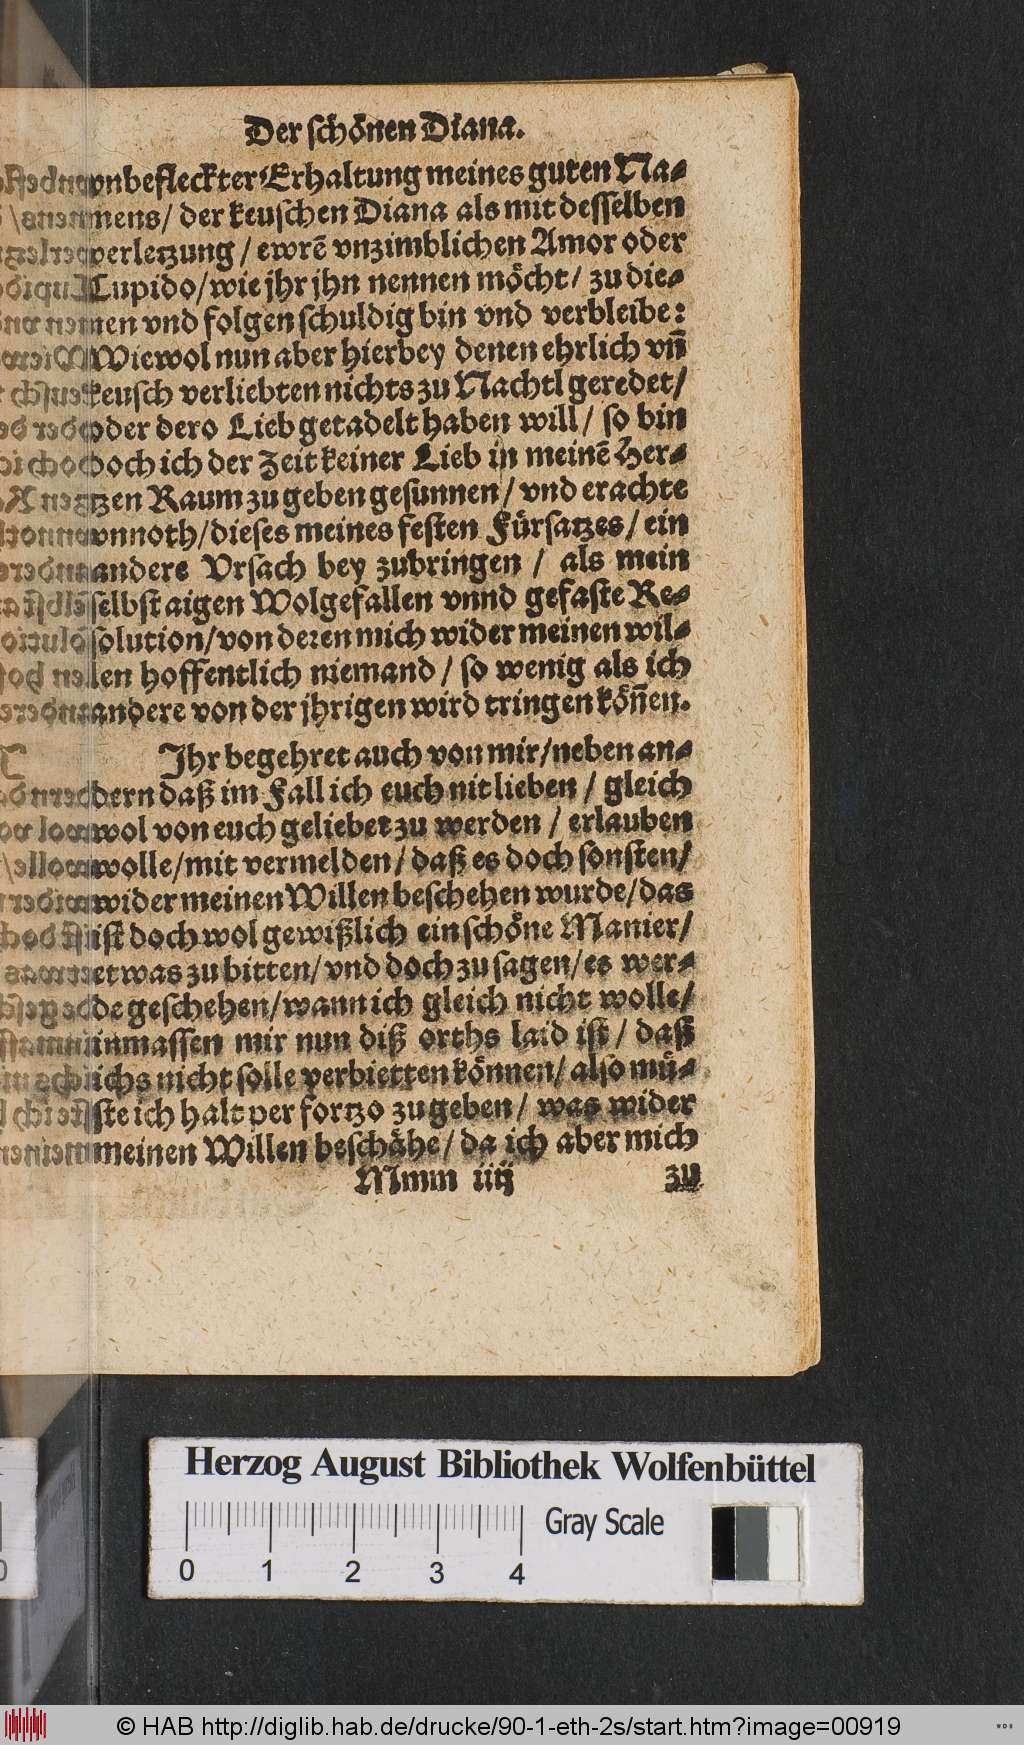 Der schönen Diana.
vnbefleckter Erhaltung meines guten Na-
mens/ der keuschen Diana als mit desselben
verletzung/ ewrē vnzimblichen Amor oder
Cupido/ wie jhr jhn nennen möcht/ zu die-
nen vnd folgen schuldig bin vnd verbleibe:
Wiewol nun aber hierbey denen ehrlich vn̄
keusch verliebten nichts zu Nachtl geredet/
oder dero Lieb getadelt haben will/ so bin
doch ich der Zeit keiner Lieb in meinē Her-
tzen Raum zu geben gesunnen/ vnd erachte
vnnoth/ dieses meines festen Fürsatzes/ ein
andere Vrsach bey zubringen/ als mein
selbst aigen Wolgefallen vnnd gefaste Re-
solution/ von deren mich wider meinen wil-
len hoffentlich niemand/ so wenig als ich
andere von der jhrigen wird tringen kön̄en.
Ihr begehret auch von mir/ neben an-
dern daß im Fall ich euch nit lieben/ gleich
wol von euch geliebet zu werden/ erlauben
wolle/ mit vermelden/ daß es doch sonsten/
wider meinen Willen beschehen wurde/ das
ist doch wol gewißlich ein schöne Manier/
etwas zu bitten/ vnd doch zu sagen/ es wer-
de geschehen/ wann ich gleich nicht wolle/
inmassen mir nun diß orths laid ist/ daß
ichs nicht solle verbietten können/ also mü-
ste ich halt per fortzo zu geben/ was wider
meinen Willen beschähe/ da ich aber mich
Mmm iiij zu
Herzog August Bibliothek Wolfenbüttel
Gray Scale
0 1 2 3 4
© HAB http://diglib.hab.de/drucke/90-1-eth-2s/start.htm?image=00919